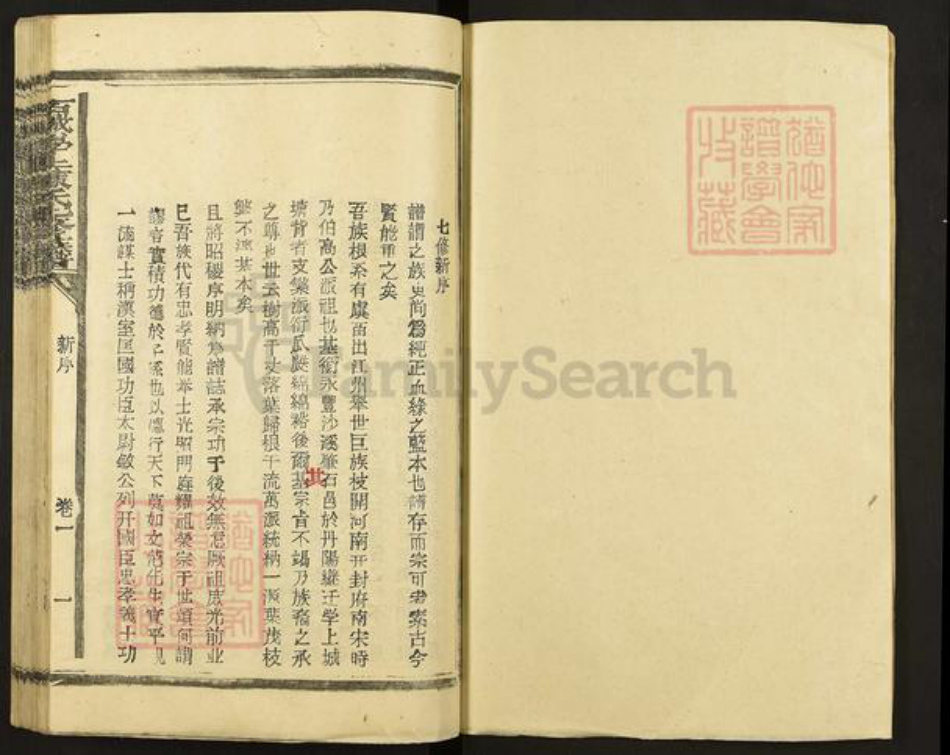 七修新序
譜謂之族史尚為純正血緣之藍本也譜存而宗可考案古今
賢能重之矣
吾族根系有虞苗出江州舉世巨族枝開河南开封府南宋時
乃伯高公派祖也基衍永豐沙溪 石邑於丹陽繼迁学上城
塘背者支繁派衍瓜瓞綿綿裕後爾 其宗 不竭乃族裔之承
之尊也世云樹高千丈落葉歸根千流萬派統枘一 葉茂枝
繁不 其本矣
且將昭穆序明納為譜誌承宗功于後效無怠厥祖 光前业
已吾族代有忠孝賢能举士光照門庭耀祖榮宗于世頌何謂
譜 實積功德於 也以德行天下莫如文范先生 平
一流謀士稱漢室匡國功臣太尉敏公列开國臣忠孝義士功
新序
卷一
一
猶他家
譜學會
收藏
猶他家
譜學會
收藏
FamilySearch